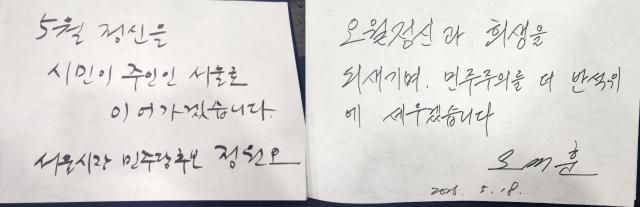 5월 정신을
시민이 주인인 서울로
이어가겠습니다.
서울시장 민주당후보 정원오
오월정신과 희생을
되새기며, 민주주의를 더 반석위
에 세우겠습니다
오세훈
2026. 5. 18.